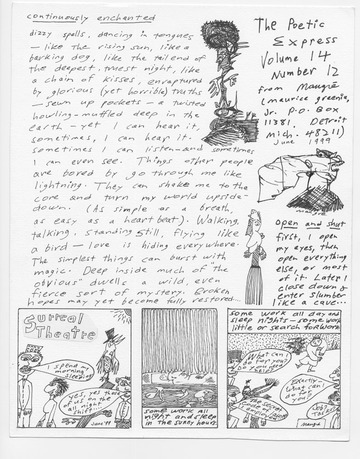 continuously enchanted
dizzy spells, dancing in tongues
— like the rising sun, like a
barking dog, like the tail end of
the deepest, truest night, like
a chain of kisses, enraptured
by glorious (yet horrible) truths
— sewn up pockets — a twisted
howling-muffled deep in the
earth — yet I can hear it,
sometimes, I can hear it.
sometimes I can listen—and sometimes
I can even see. Things other people
are bored by go through me like
lightning. They can shake me to the
core and turn my world upside-
down. (As simple as a breath,
as easy as a heart beat). Walking,
talking, standing still, flying like
a bird — love is hiding everywhere.
The simplest things can burst with
magic. Deep inside much of the
"obvious" dwells a wild, even
fierce sort of mystery. Broken
hopes may yet become fully restored...
The Poetic
Express
Volume 14
Number 12
from Maugré
(maurice greenia,
Jr. P.O. Box
11381 Detroit
Mich. 48211)
June 1999
maugré
open and shut
first, I open
my eyes, then
open everything
else, or most
of it. Later, I
close down &
enter slumber
like a cave...
Surreal
Theatre
I spend my
morning
sleeping
yes, yes there
of us on the
all night
shift...
June '99
some work all
night and sleep
in the sunny hours.
some work all day and
sleep nights — some work
little or search for work
What can I
do for you?
Do you
Exactly.
What can I
do for
you
Maugré